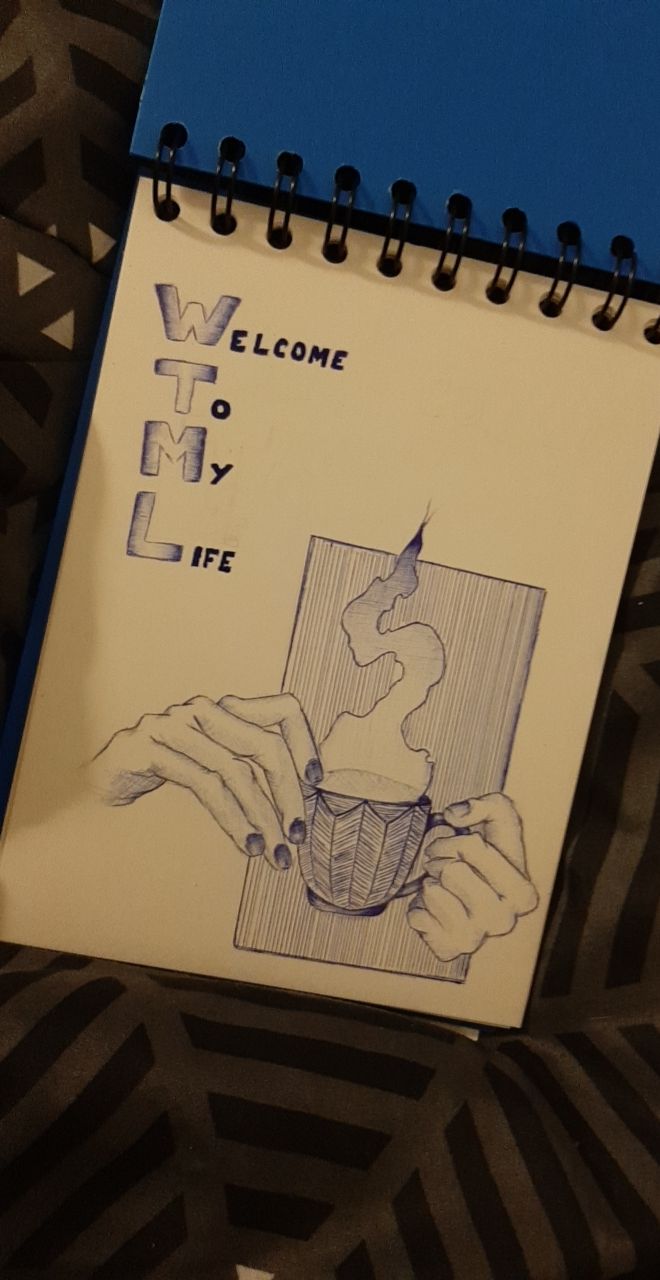 WELCOME
TO
MY
LIFE